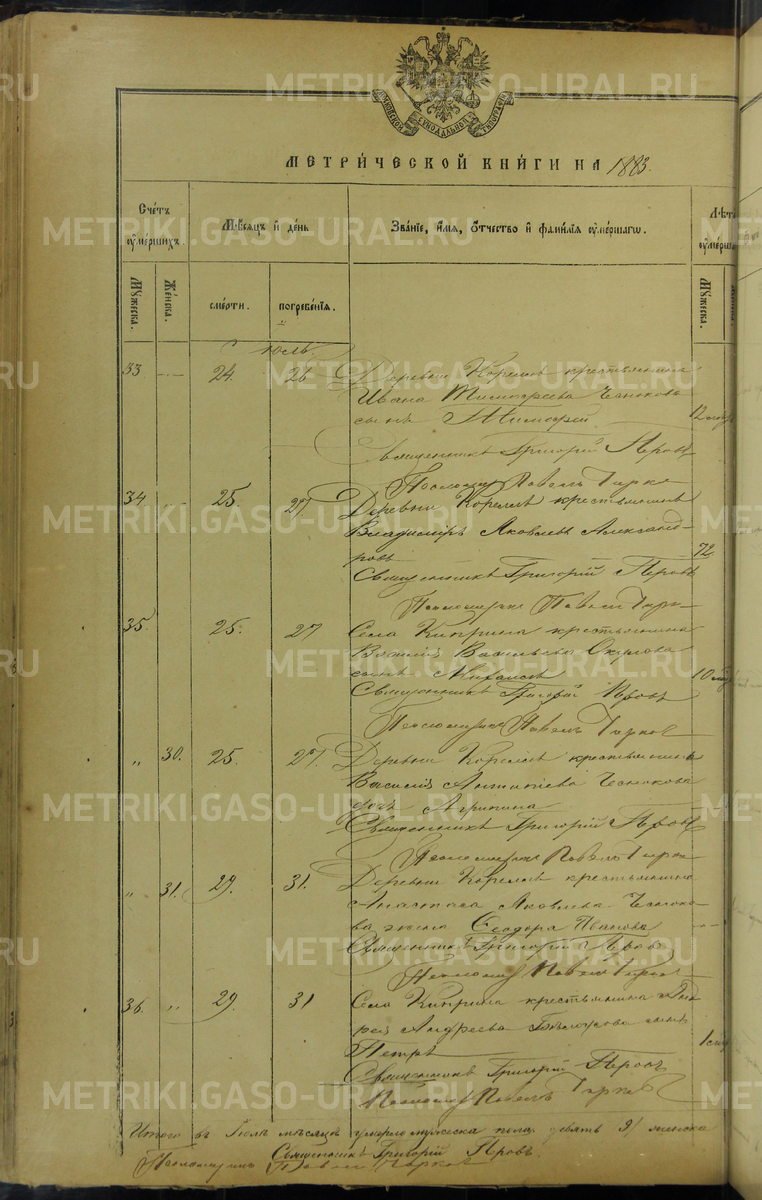 METRIKI.GASO-URAL.RU
МЕТРИ́ЧЕСКОЙ КНИ́ГИ НА 1883.
Счётъ ᲂу҆ме́ршихъ.
Мѣ́сяцъ и де́нь
Зва́нїе, и҆́мя, ѻ҆́тчество и фами́лїя ᲂу҆ме́ршагѡ.
Лѣт
Мꙋ́жеска.
Же́нска.
сме́рти.
погребе́нїя.
Мꙋ́жеска.
Юль
33 24. 26 Деревни Корелъ крестьянина
Ивана Тимофеева Чеснокова
сынъ Тимофей 12
Священникъ Григорій Перовъ
Псаломщикъ Павелъ
34 25. 27 Деревни Корелъ крестьянинъ
Владиміръ Яковлевъ Александ-
ровъ 72
Священникъ Григорій Перовъ
Псаломщикъ Павелъ
35. 25. 27 Села Киприна крестьянина
Василія Васильева Окулова
сынъ Михаилъ 10
Священникъ Григорій Перовъ
Псаломщикъ Павелъ
„ 30. 25. 27. Деревни Корелъ крестьянина
Василія Чеснокова
дочь Агрипина
Священникъ Григорій Перовъ
Псаломщикъ Павелъ
„ 31. 29. 31. Деревни Корелъ крестьянина
Анастаса Яковлева Чесноко-
ва жена Ѳеодора Иванова
Священникъ Григорій Перовъ
Псаломщикъ Павелъ
36. „ 29 31 Села Киприна крестьянина Анд-
рея Андреева Бѣлоусова сынъ
Петръ 1
Священникъ Григорій Перовъ
Псаломщикъ Павелъ
Итого въ Іюлѣ мѣсяцѣ умерло мужеска пола девять 9/ женска
Священникъ Григорій Перовъ.
Псаломщикъ Павелъ